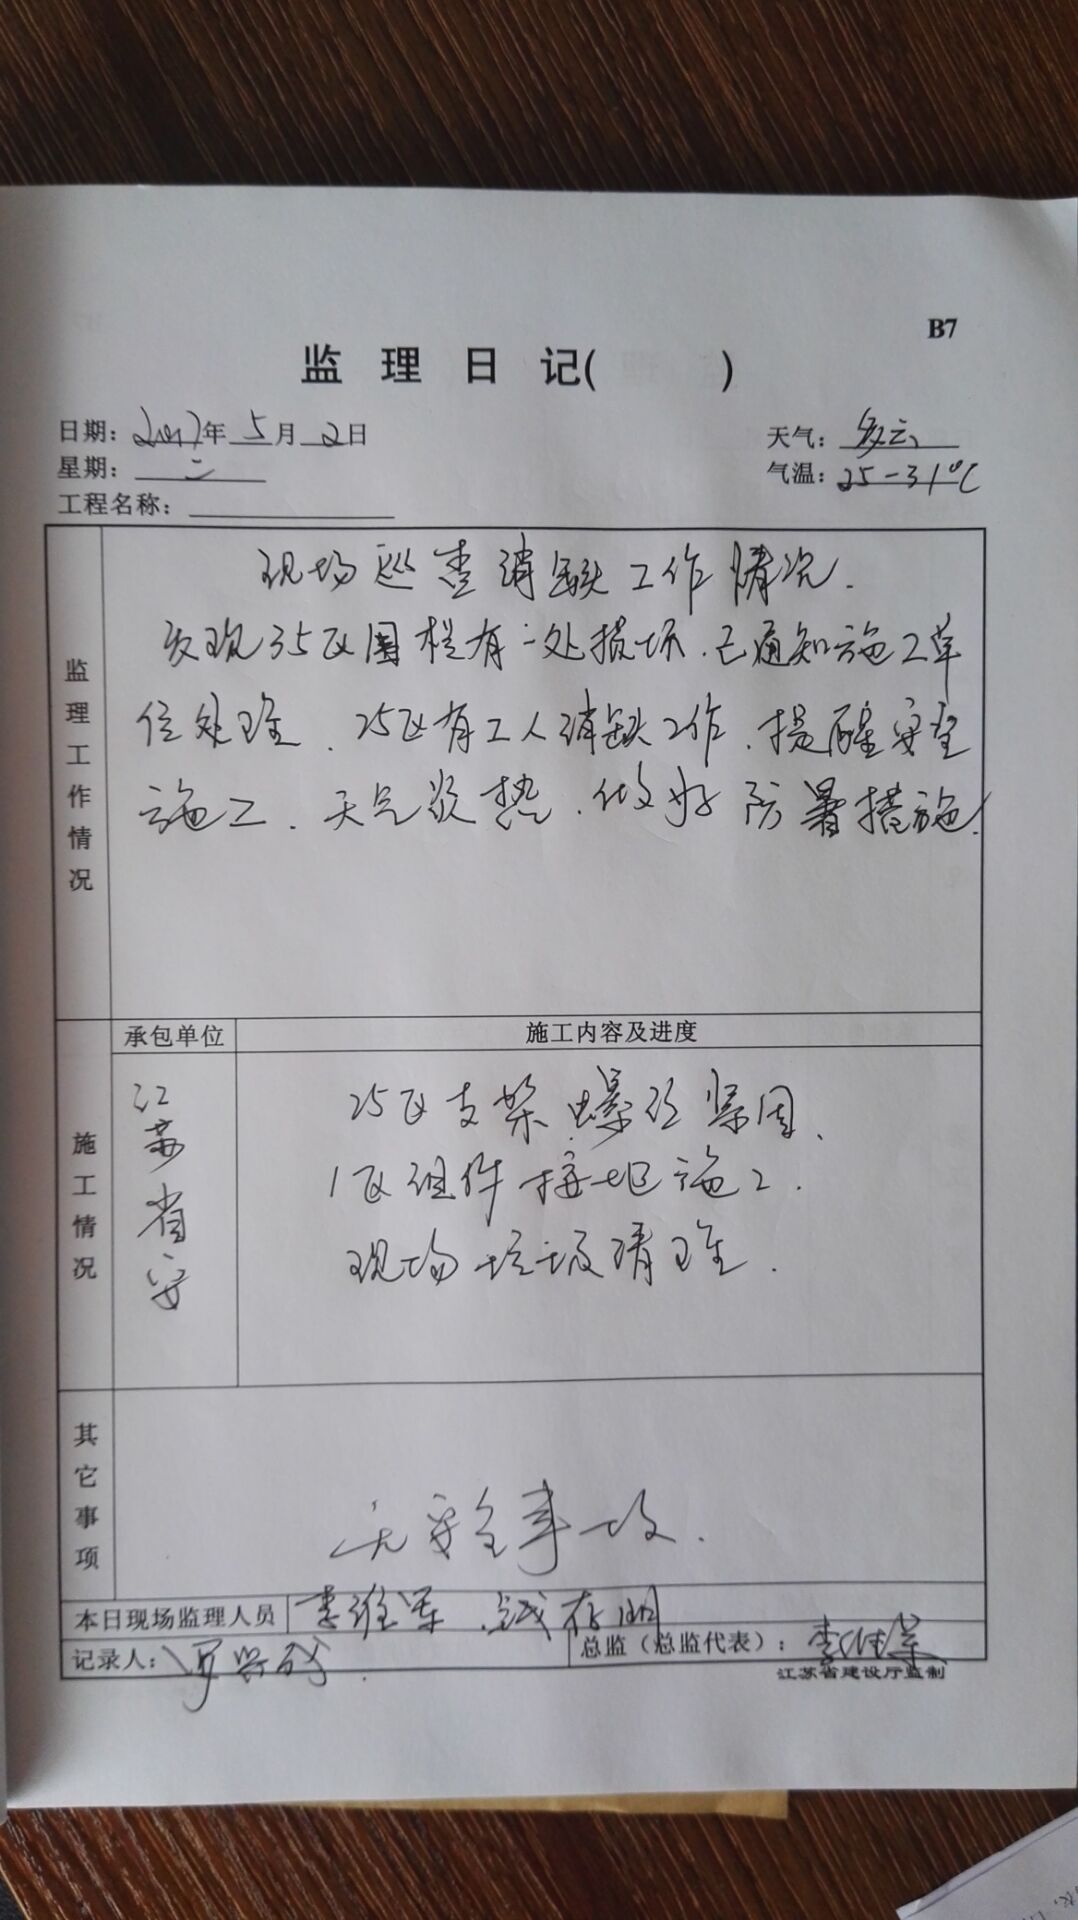 B7
监 理 日 记(　　)
日期：2017年 5 月 2 日
天气：多云
星期：二
气温：25-31℃
工程名称：
监理工作情况
现场巡查消缺工作情况.
发现35区围栏有一处损坏.已通知施工单
位处理、25区有工人消缺工作、提醒安全
施工、天气炎热、做好防暑措施.
承包单位
施工内容及进度
施工情况
江苏省安
25区支架螺丝紧固、
1区组件接地施工.
现场垃圾清理.
其它事项
无安全事故.
本日现场监理人员 李维军
记录人：
总监（总监代表）：
江苏省建设厅监制